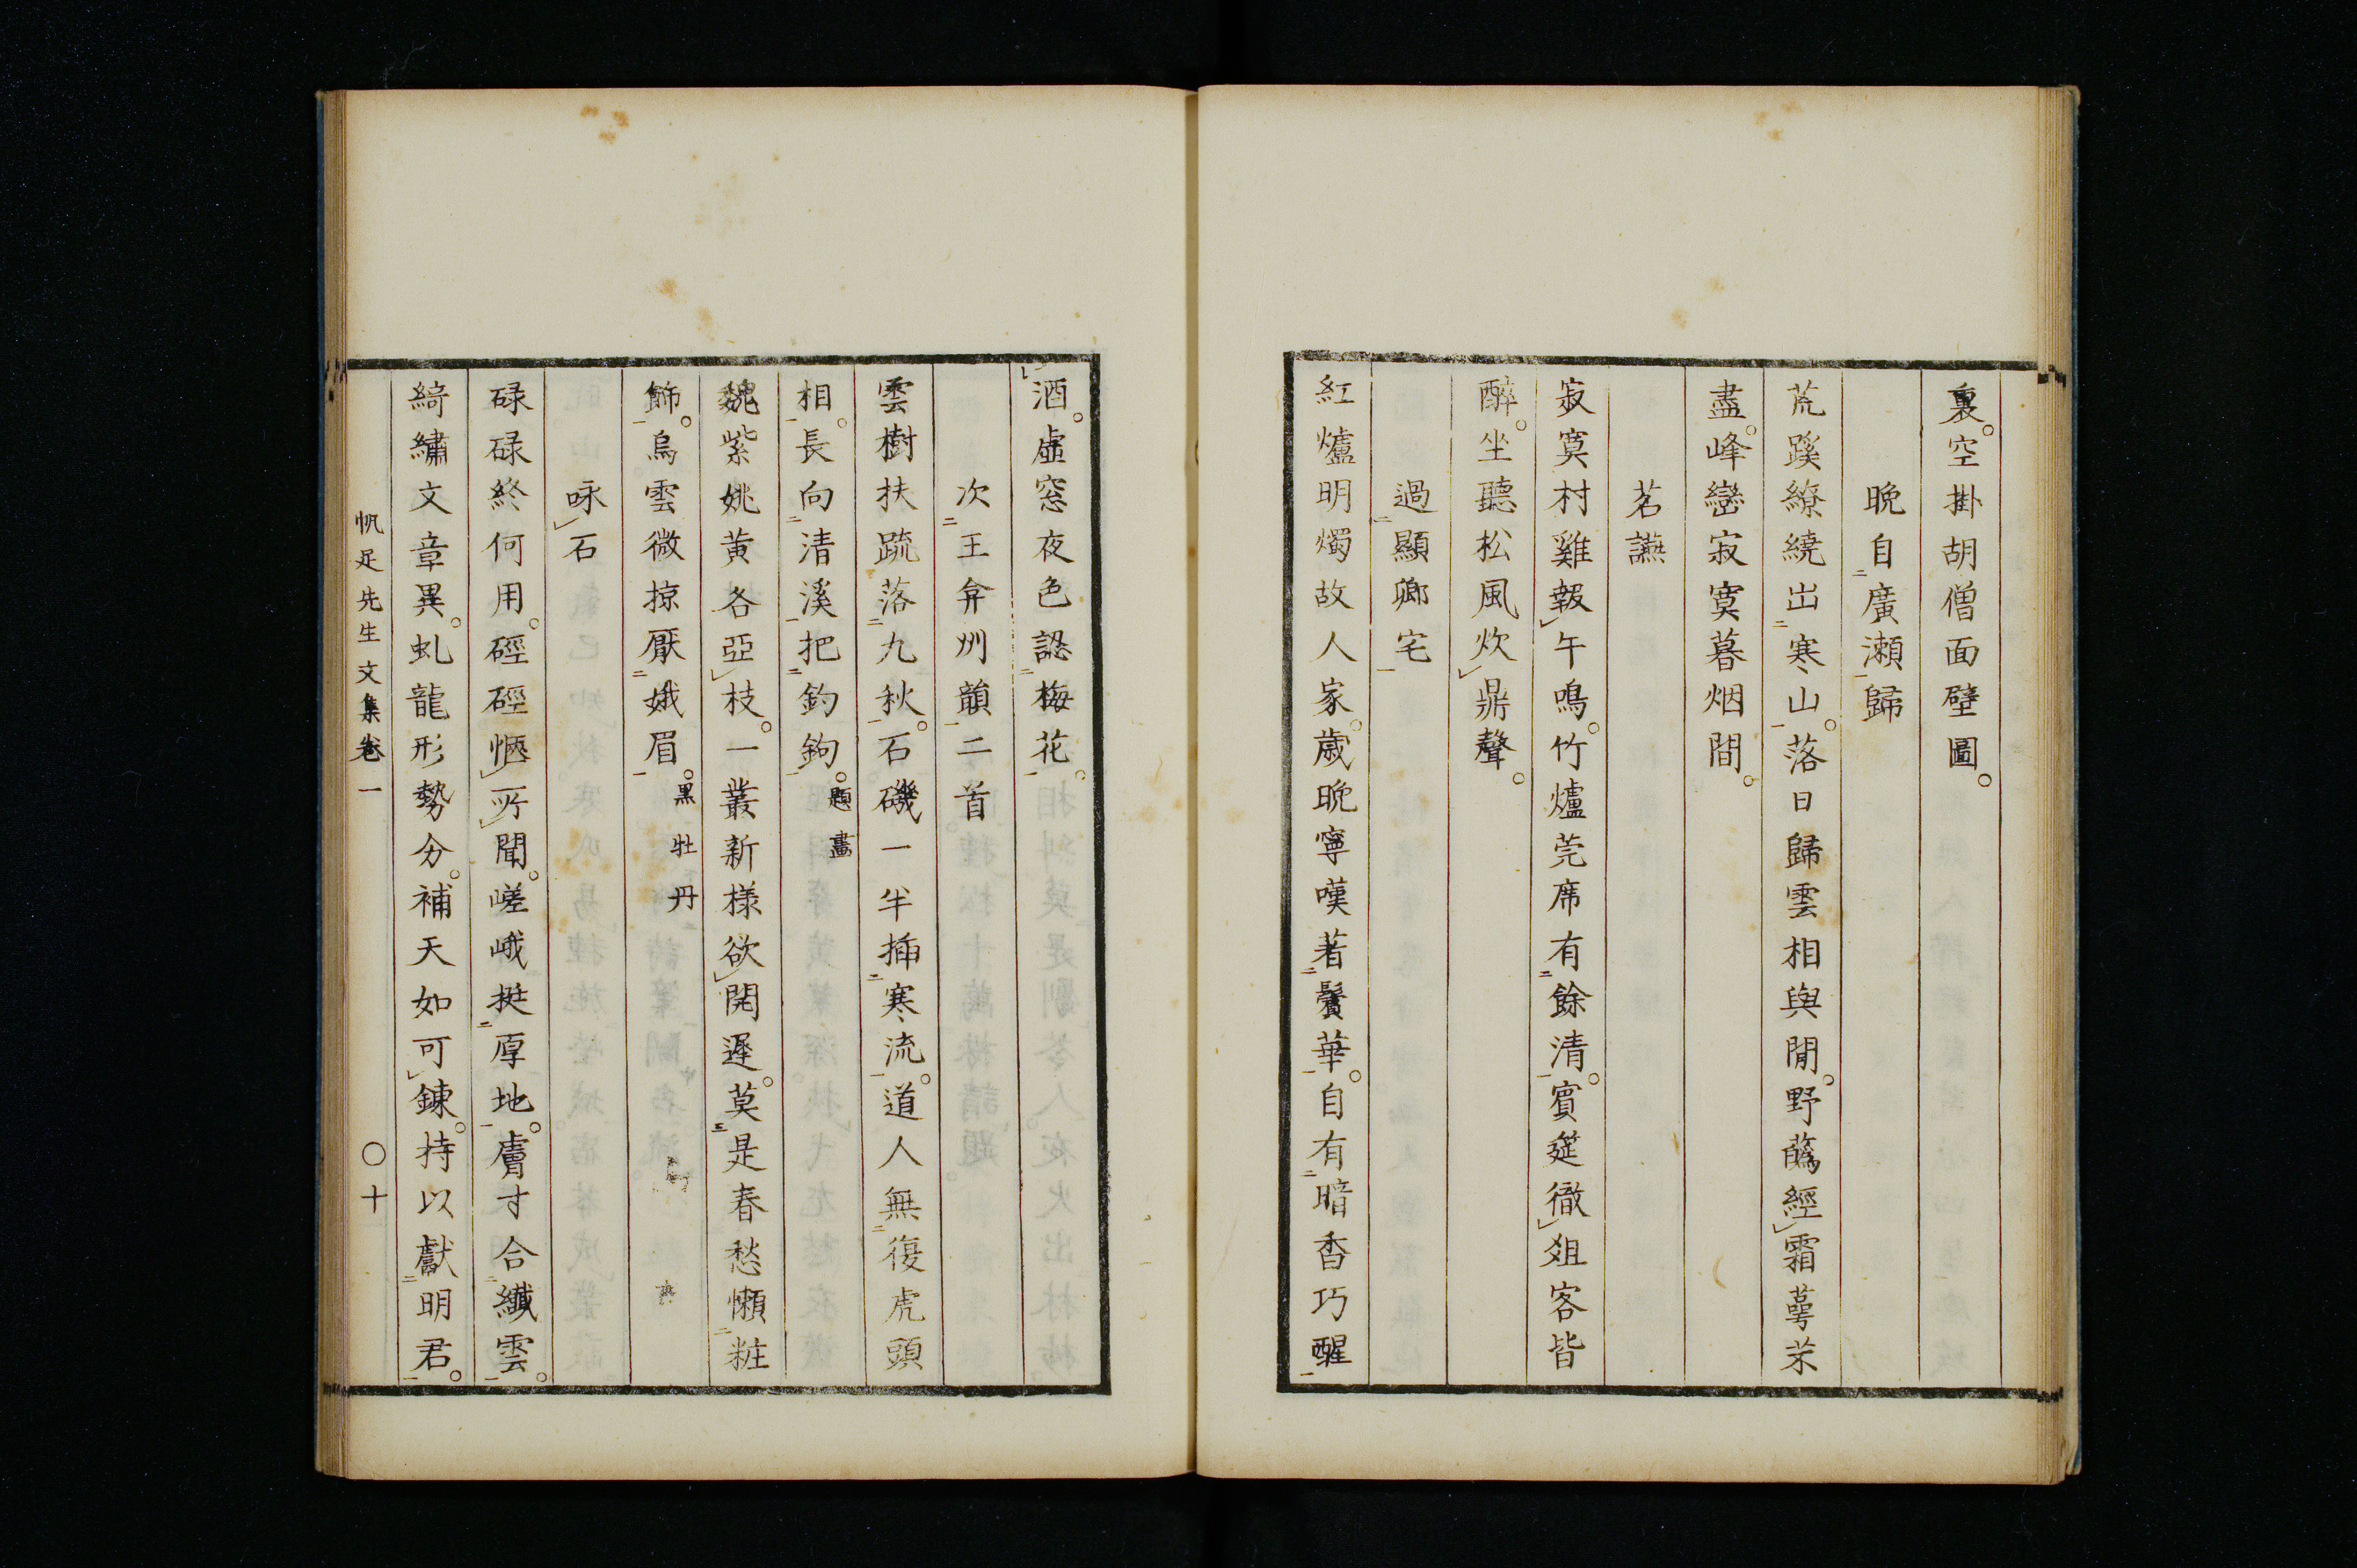 裏。空掛胡僧面壁圖。
晩自廣瀬歸
荒蹊繚繞出寒山。落日歸雲相與閒。野蔿經霜萼芣
盡。峰巒寂寞暮烟間。
茗讌
寂寞村雞報午鳴。竹爐莞席有餘清。賓筵徹俎客皆
醉。坐聽松風炊鼎聲。
過顯卿宅
紅爐明燭故人家。歳晩寧嘆著鬢華。自有暗香巧醒
酒。虛窓夜色認梅花。
次王弇州韻二首
雲樹扶疏落九秋。石磯一半揷寒流。道人無復虎頭
相。長向清溪把釣鉤。題畫
魏紫姚黄各亞枝。一叢新様欲開遲。莫是春愁懶粧
飾。烏雲微掠厭娥眉。黒牡丹
咏石
碌碌終何用。硜硜愜所聞。嵯峨挺厚地。膚寸合纖雲。
綺繡文章異。虬龍形勢分。補天如可錬。持以獻明君。
帆足先生文集卷一 〇十